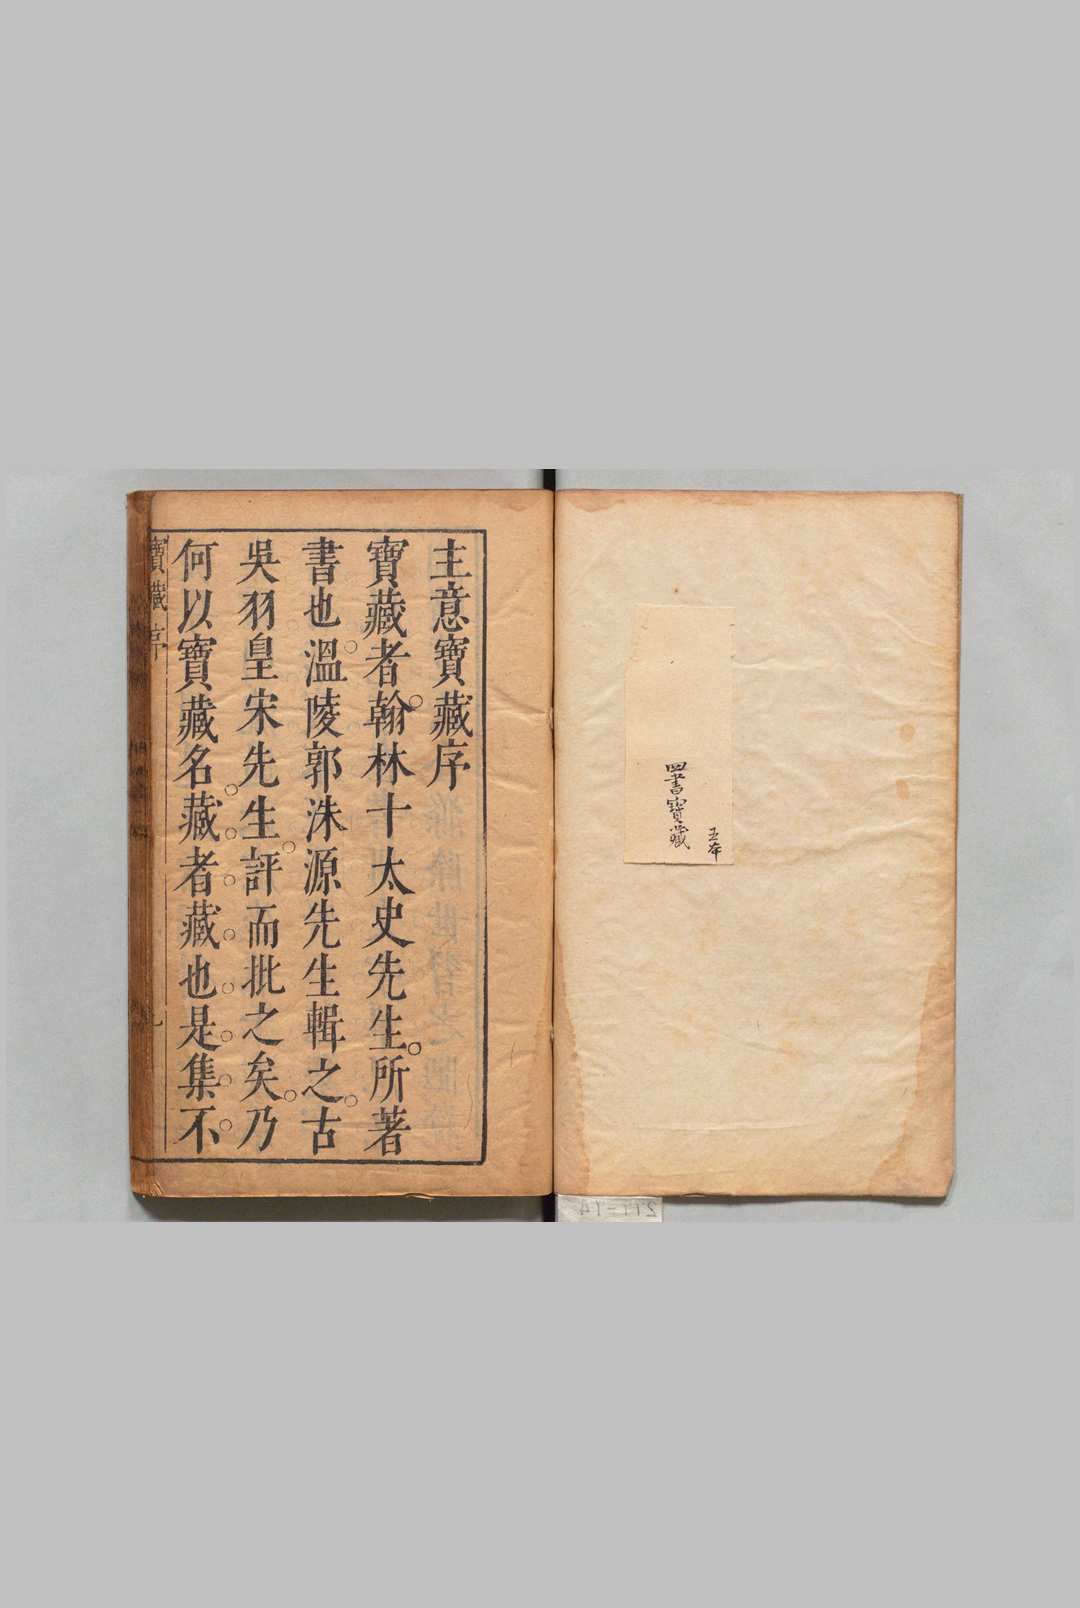 四書寶藏
五本
主意寶藏序
寶藏者翰林十太史先生所著
書也溫陵郭洙源先生輯之古
吳羽皇宋先生評而批之矣乃
何以寶藏名藏者藏也是集不
寶藏序